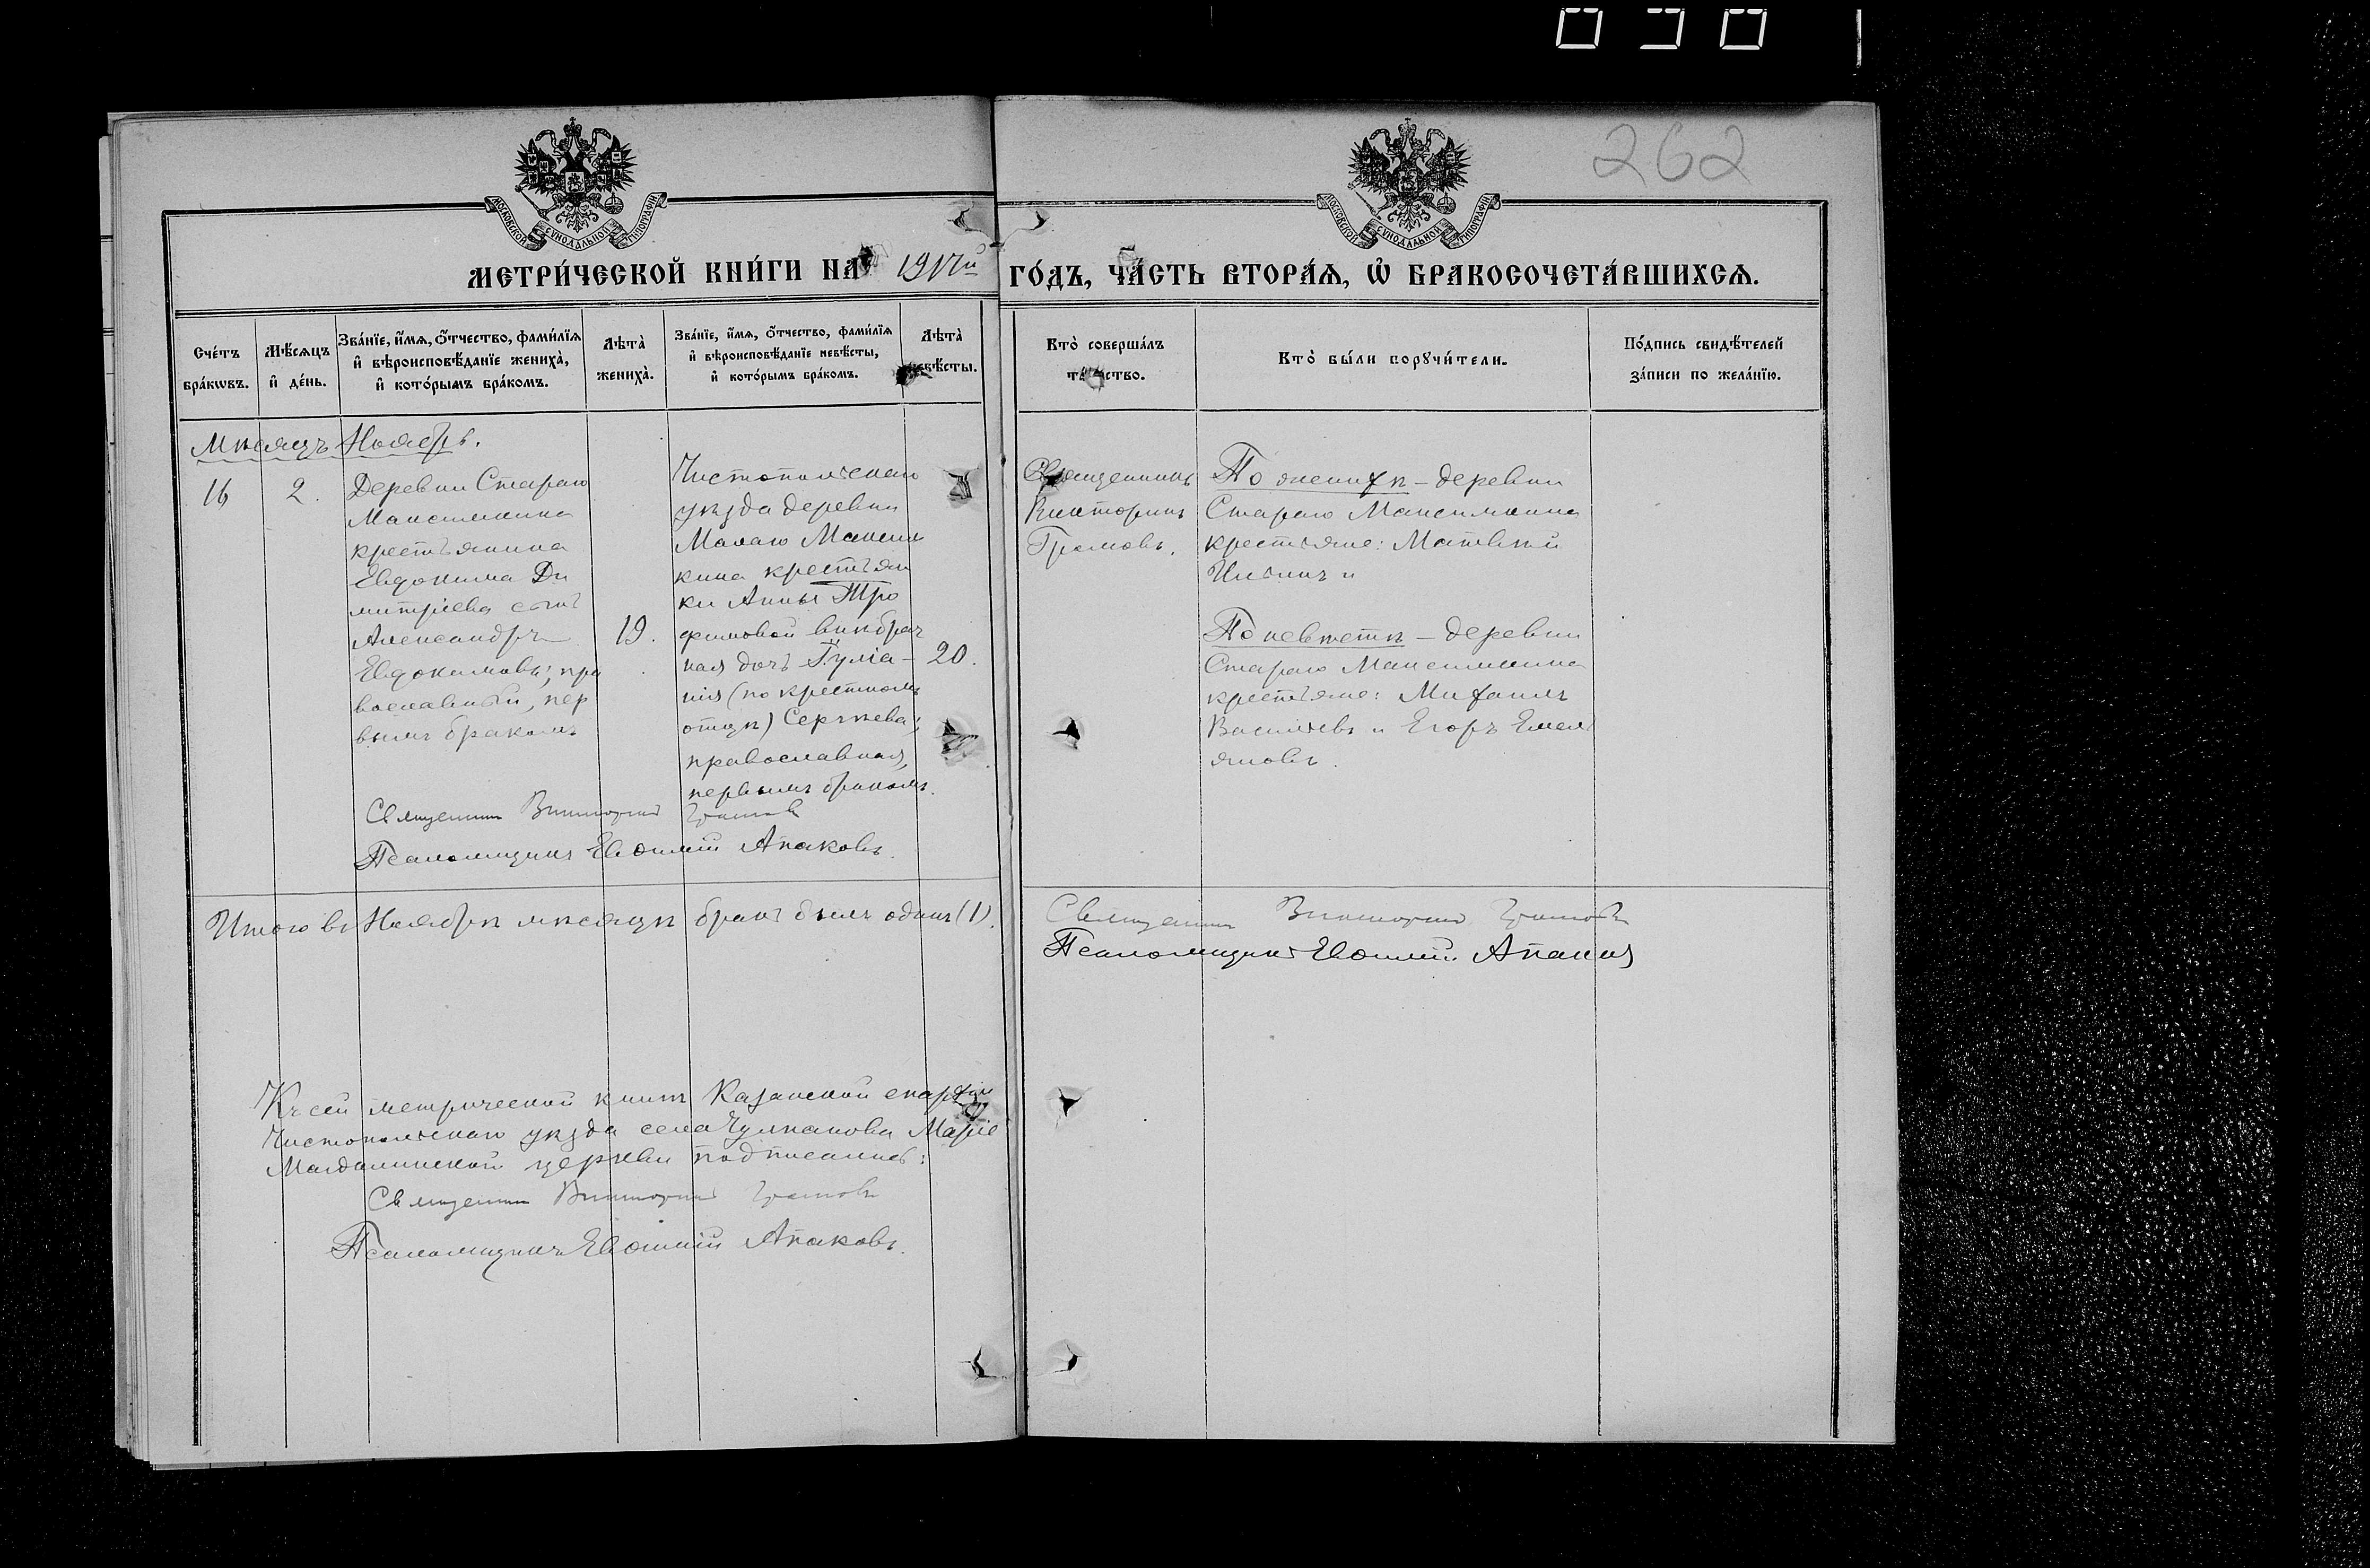 262
МОСКОВСКОЙ СѴНОДАЛЬНОЙ ТИПОГРАФІИ
МОСКОВСКОЙ СѴНОДАЛЬНОЙ ТИПОГРАФІИ
МЕТРИ́ЧЕСКОЙ КНИ́ГИ НА 1917й ГО́ДЪ, ЧА́СТЬ ВТОРА́Ѧ, Ѽ БРАКОСОЧЕТА́ВШИХСѦ.
Сче́тъ
бра́кѡвъ.
Мѣ́сѧцъ
и҆ де́нь.
Зва́нїе, и҆́мѧ, ѻ҆́тчество, фами́лїѧ
и҆ вѣроисповѣ́данїе жениха̀,
и҆ кото́рымъ бра́комъ.
Лѣта̀
жениха̀.
Зва́нїе, и҆́мѧ, ѻ҆́тчество, фами́лїѧ
и҆ вѣроисповѣ́данїе невѣ́сты,
и҆ кото́рымъ бра́комъ.
Лѣта̀
невѣ́сты.
Кто̀ соверша́лъ
та́инство.
Кто̀ бы́ли порꙋчи́тели.
По́дпись свидѣ́телей
за́писи по жела́нїю.
Мѣсяцъ Ноябрь.
16
2.
Деревни Стараго
Максимкина
крестьянина
Евдокима Ди
митріева сынъ
Александръ
Евдокимовъ; пра
вославный, пер
вымъ бракомъ
19.
Чистопольскаго
уѣзда деревни
Малаго Максим
кина крестьян
ки Анны Тро
фимовой внѣбрач
ная дочь Іуліа-
нія (по крестному
отцу) Сергѣева;
православная,
первымъ бракомъ.
20.
Священникъ
Викторинъ
Громовъ.
По женихѣ - деревни
Стараго Максимкина
крестьяне: Матвѣй
Ильинъ и
По невѣстѣ - деревни
Стараго Максимкина
крестьяне: Михаилъ
Васильевъ и Егоръ Емель
яновъ.
Священник Викторин Громов
Псаломщикъ Евѳимій Апаковъ.
Итого въ Ноябрѣ мѣсяцѣ бракъ былъ одинъ (1).
Священник Викторин Громовъ
Псаломщикъ Евѳимій Апаковъ
Къ сей метрической книгѣ Казанской епархіи
Чистопольскаго уѣзда села Чулпанова Маріе
Магдалинской церкви подписались:
Священник Викторин Громовъ
Псаломщикъ Евѳимій Апаковъ.